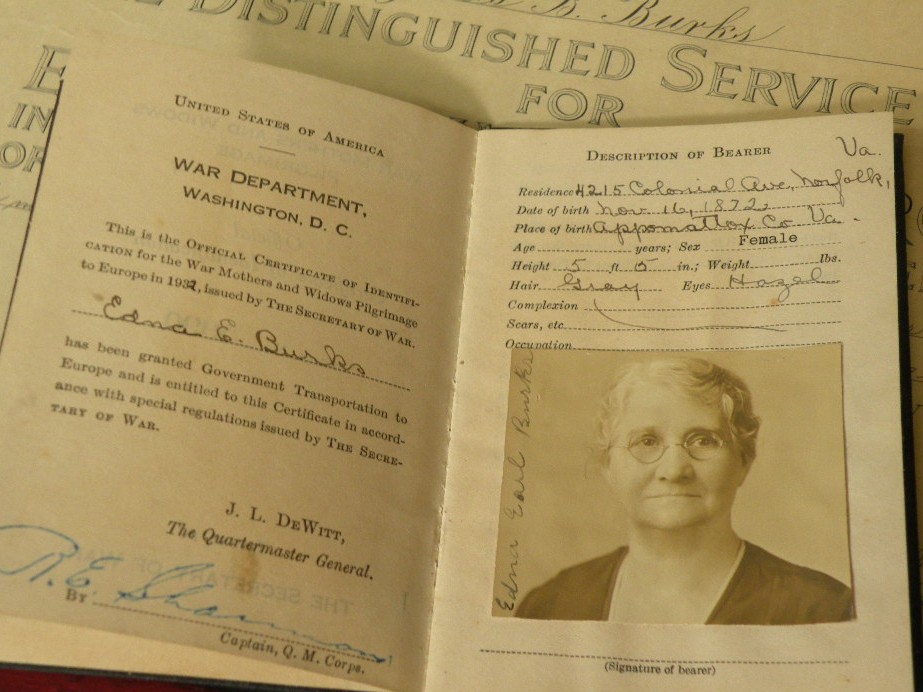 B. Burks
DISTINGUISHED SERVICE
FOR
E
IN
OR
UNITED STATES OF AMERICA
WAR DEPARTMENT,
WASHINGTON, D. C.
This is the OFFICIAL CERTIFICATE OF IDENTIFI-
CATION for the War Mothers and Widows Pilgrimage
to Europe in 1932, issued by THE SECRETARY OF WAR.
Edna E. Burks
has been granted Government Transportation to
Europe and is entitled to this Certificate in accord-
ance with special regulations issued by THE SECRE-
TARY OF WAR.
J. L. DEWITT,
The Quartermaster General.
R. E. Shannon
BY
Captain, Q. M. Corps.
DESCRIPTION OF BEARER
Va.
Residence 4215 Colonial Ave, Norfolk,
Date of birth Nov. 16, 1872
Place of birth Appomattox Co Va.
Age years; Sex Female
Height 5 ft. 5 in.; Weight lbs.
Hair Gray Eyes Hazel
Complexion
Scars, etc.
Occupation
Edna Earl Burks
(Signature of bearer)